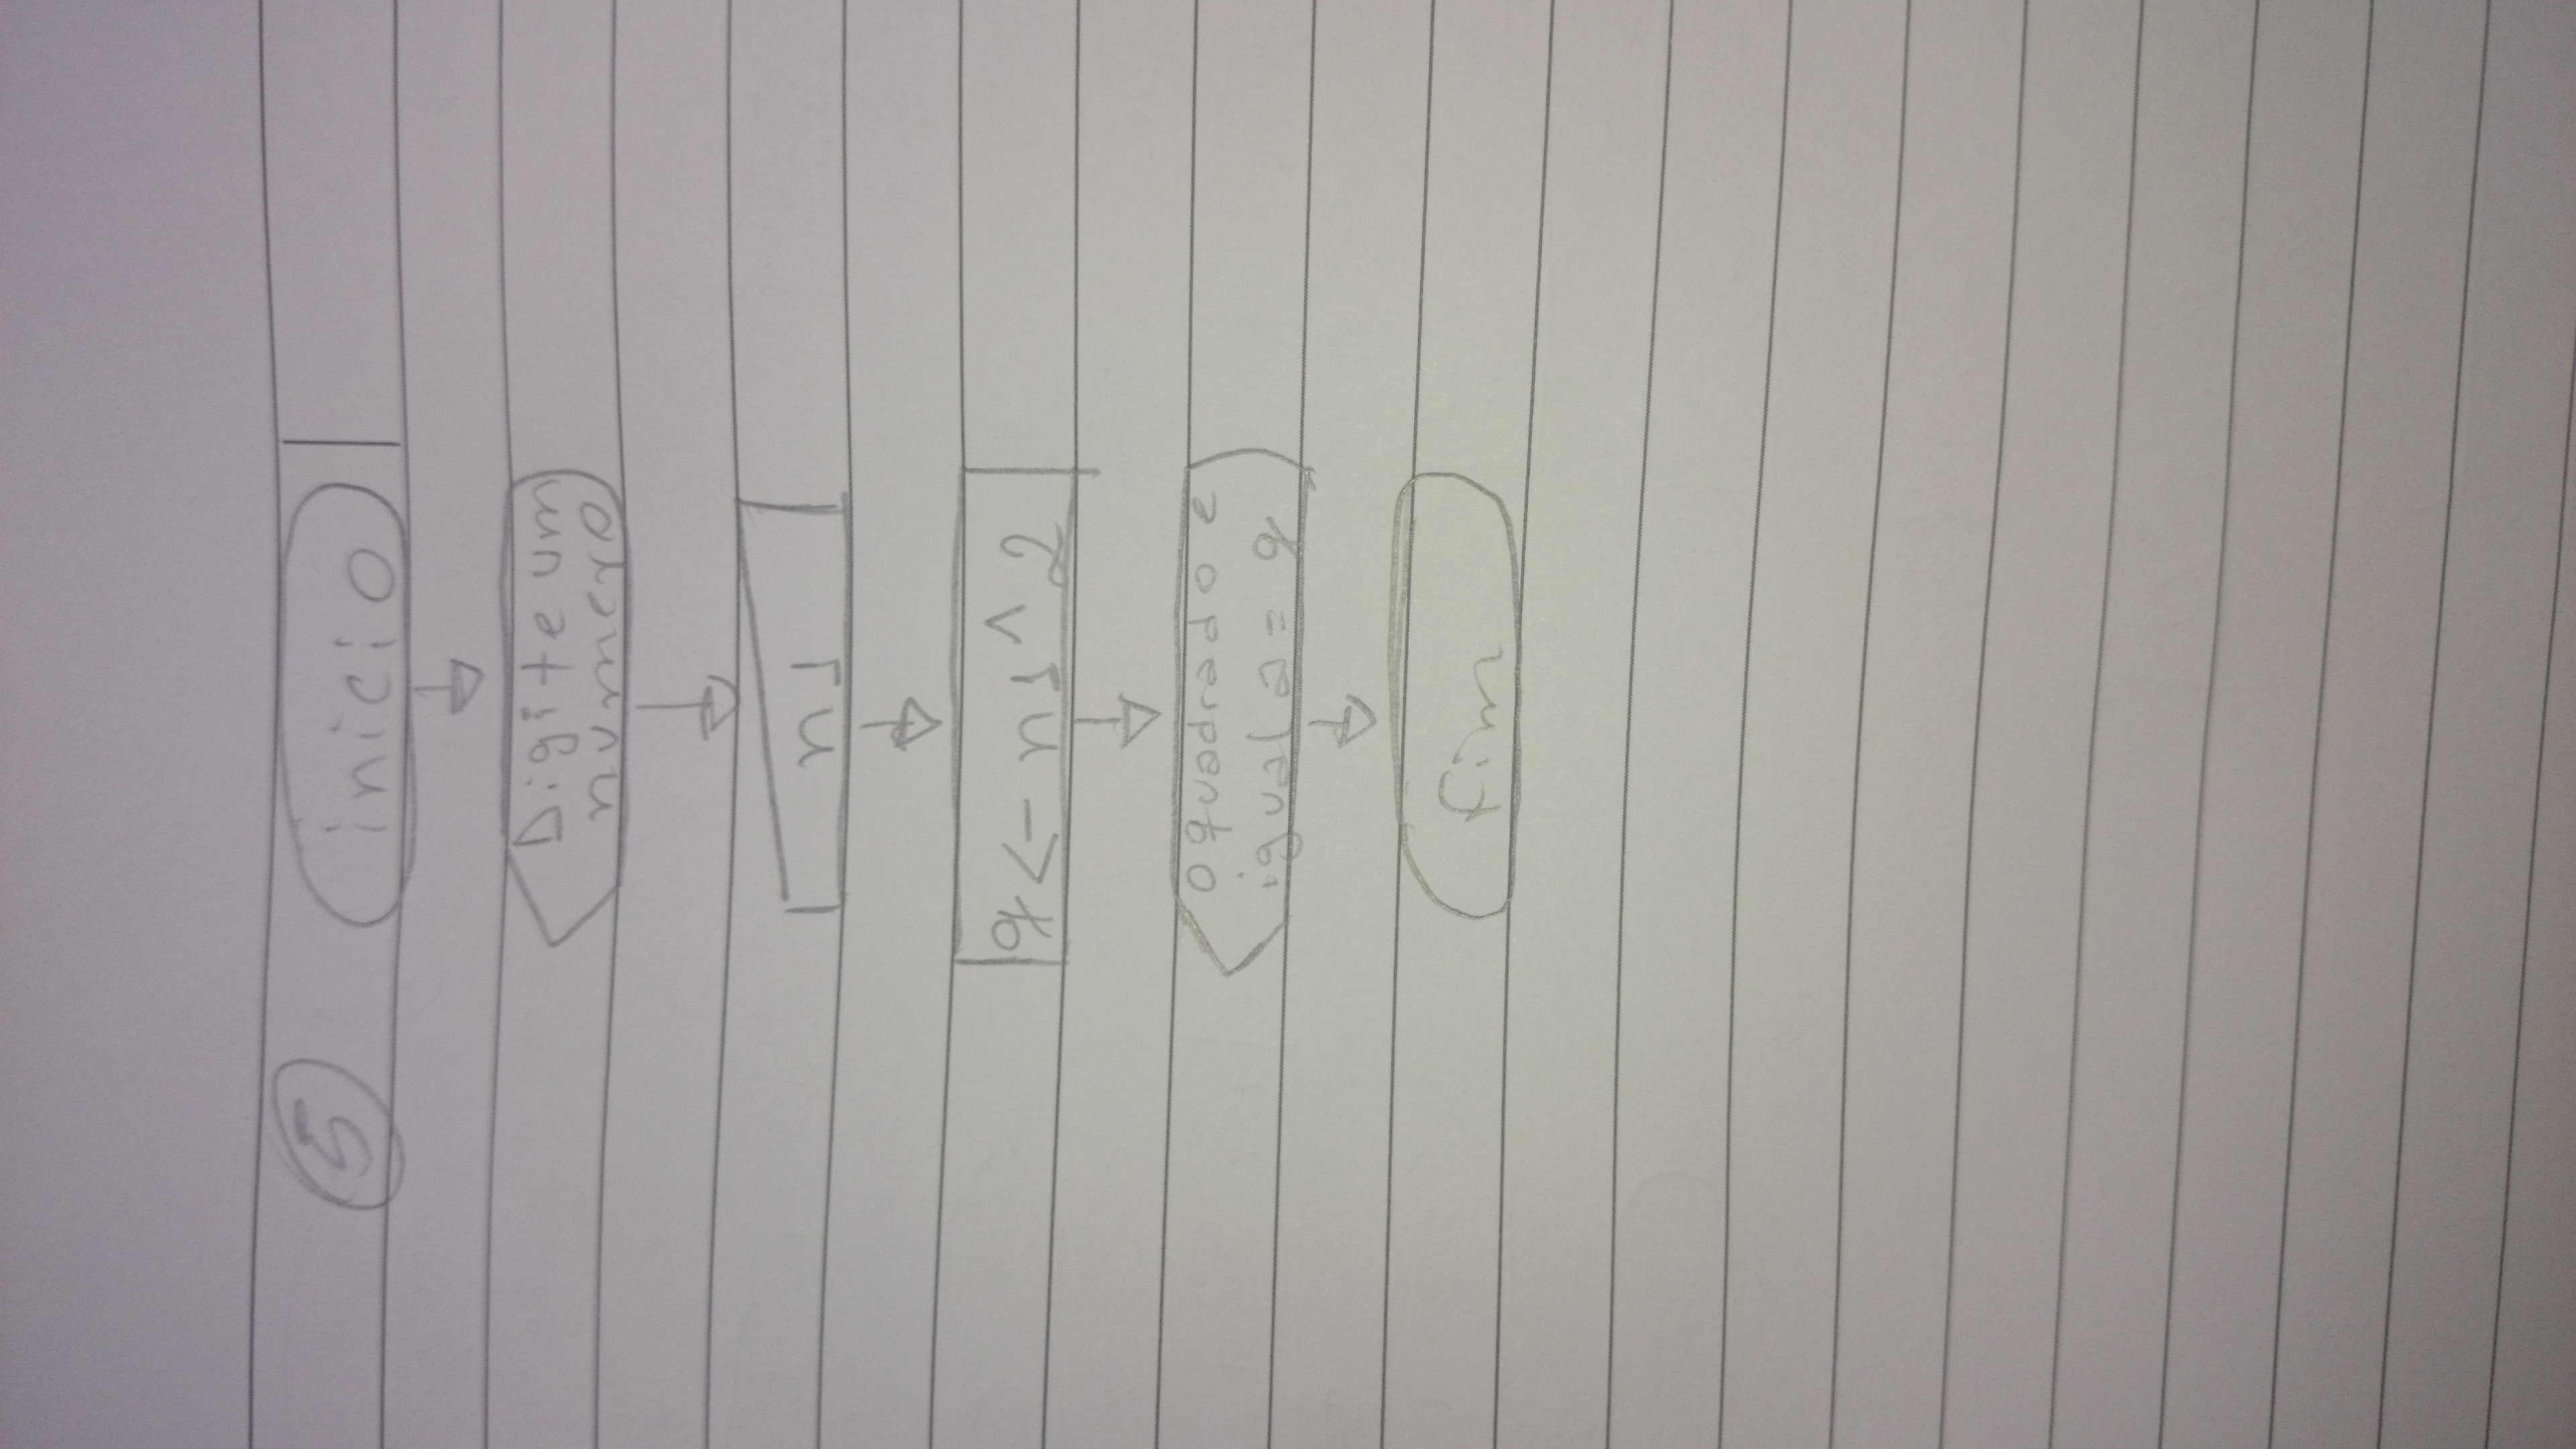 5
inicio
Digite um
numero
n1
q <- n1 ^ 2
o quadrado e
igual a = q
fim